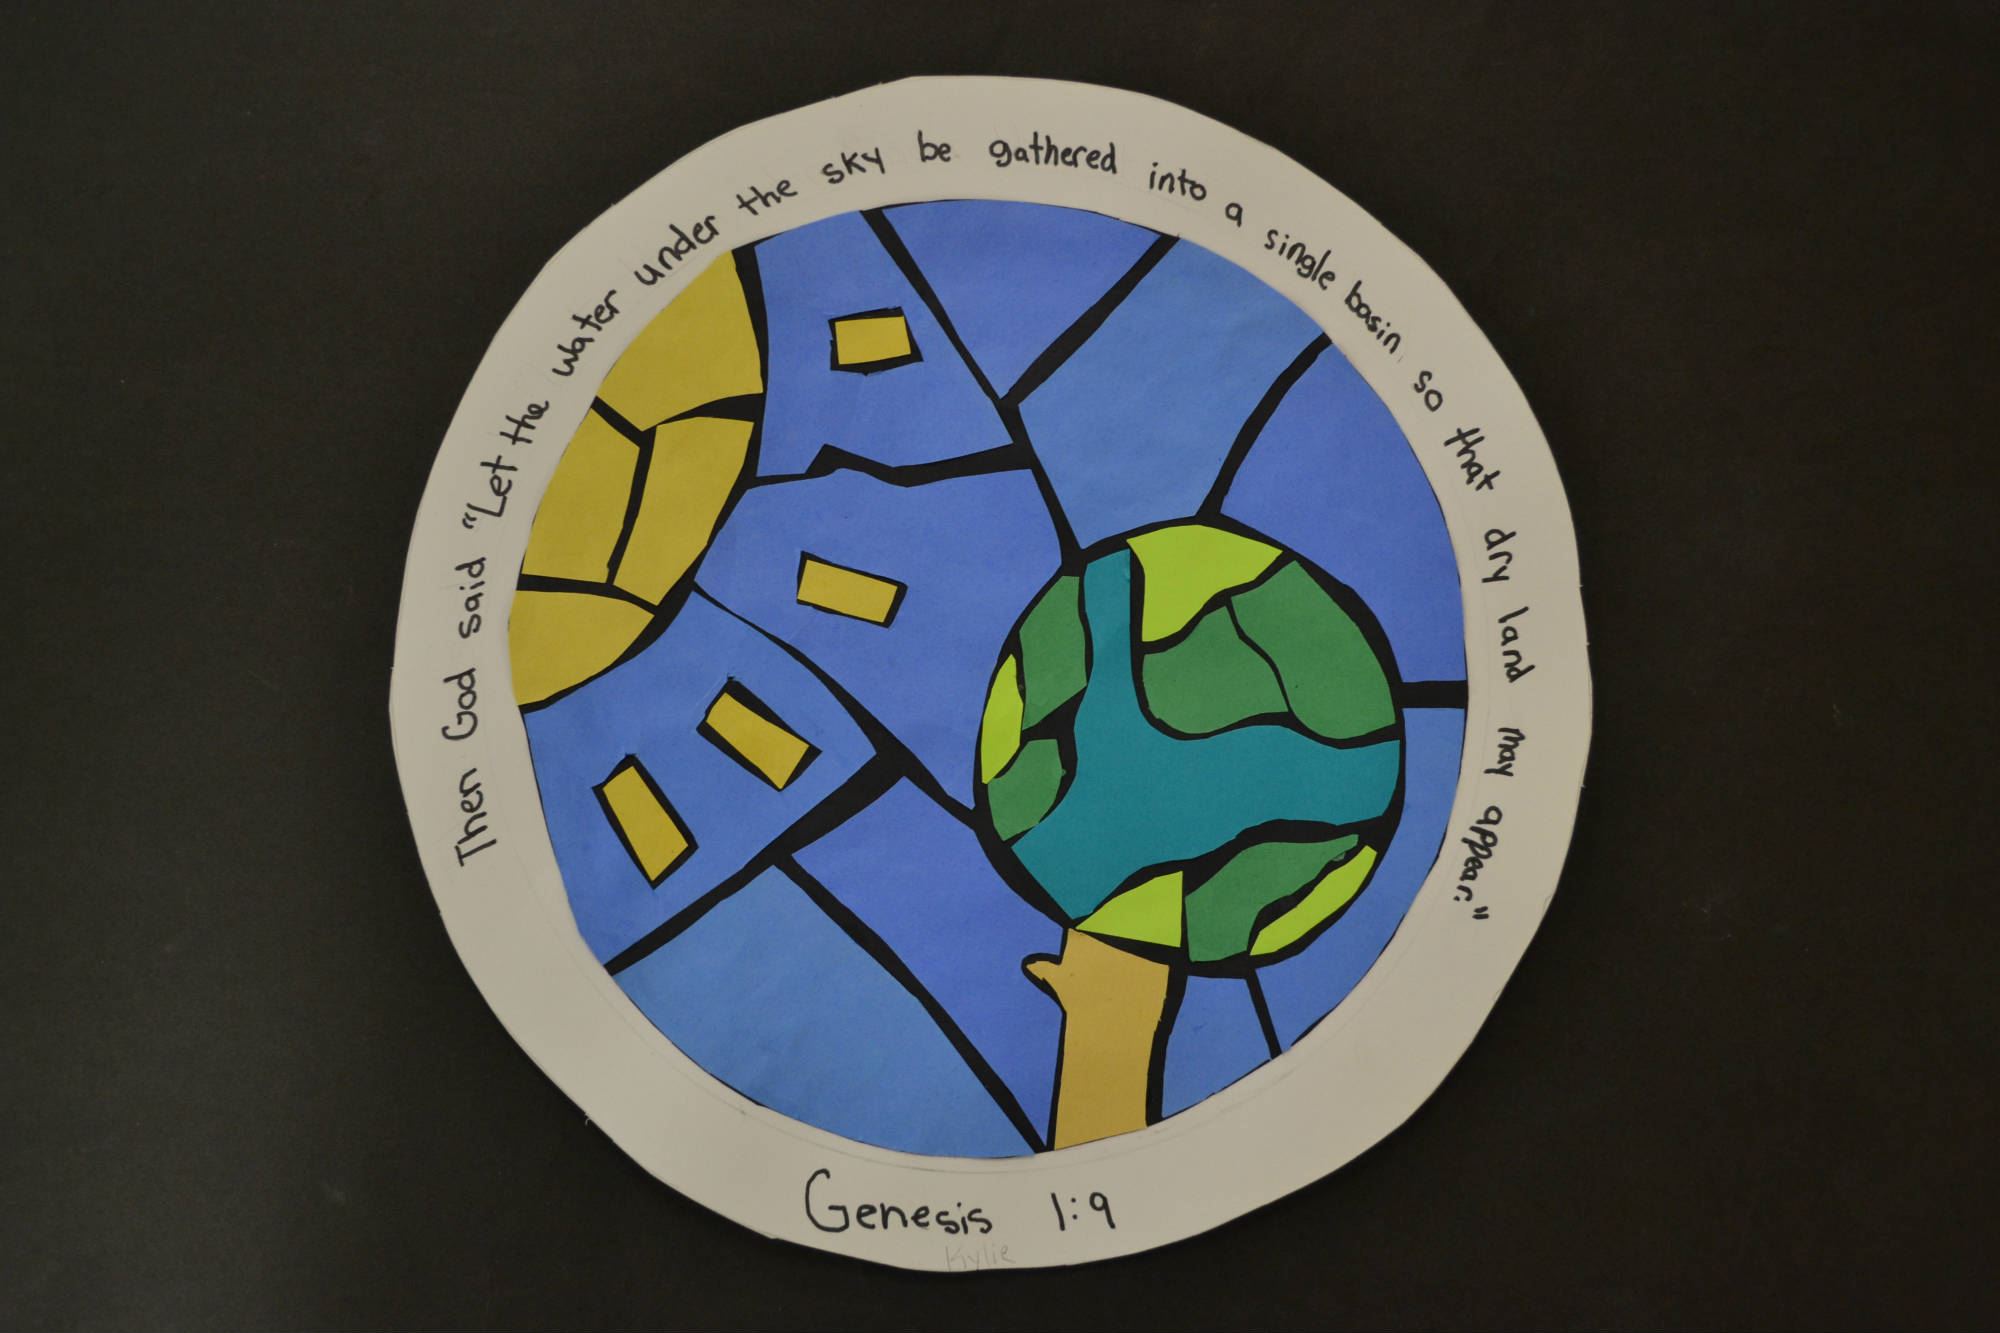 Then God said "Let the water under the sky be gathered into a single basin, so that dry land may appear."
Genesis 1:9
Kylie